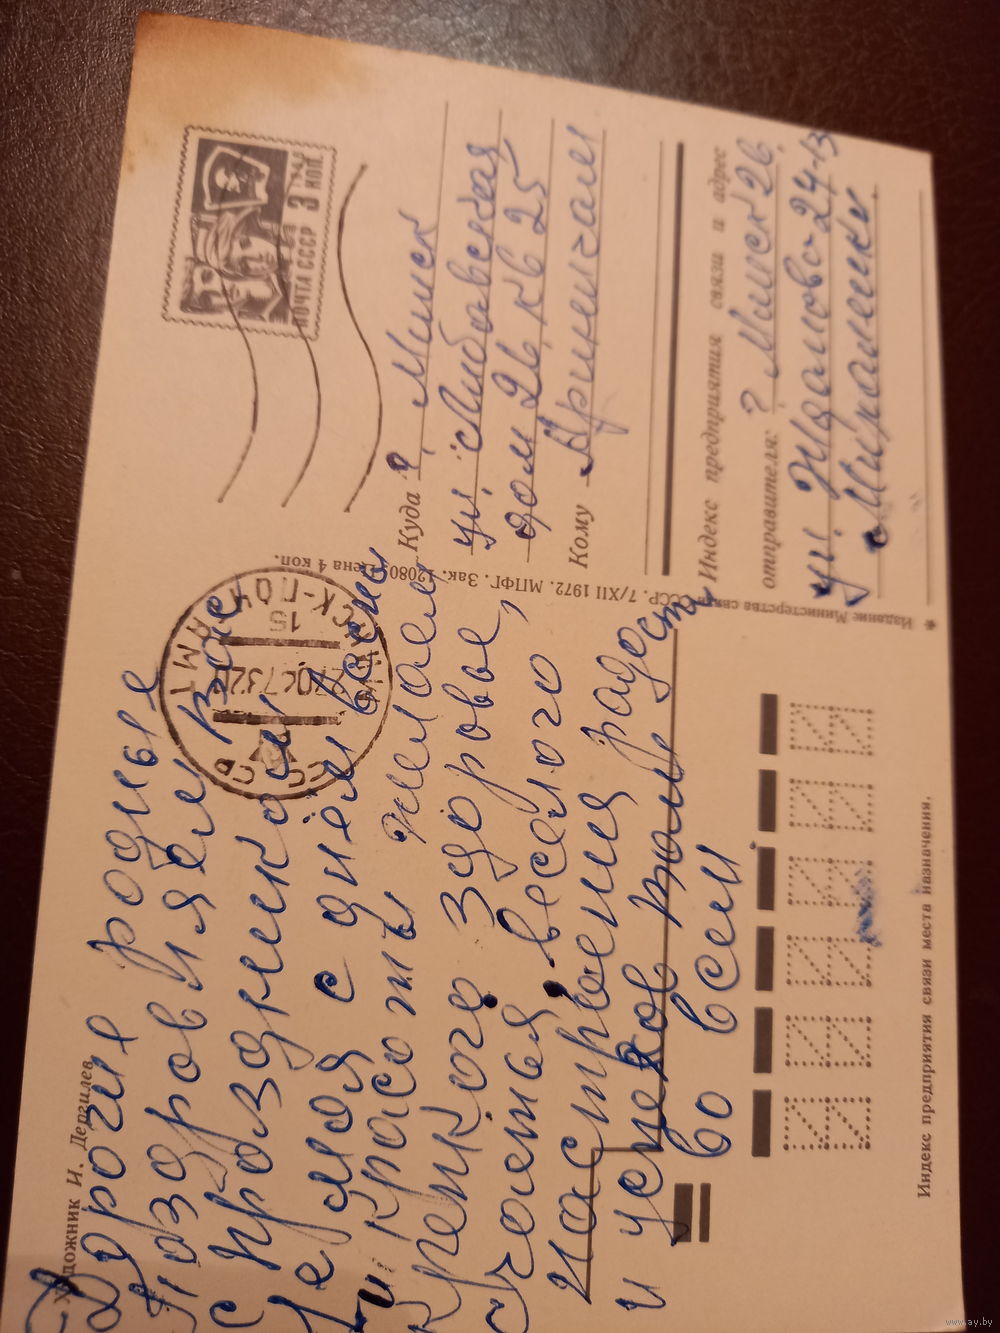 Художник И. Дергилев
Дорогие родные
Поздравляем Вас
с праздником
1е мая с днём весны
и красоты желаем
крепкого здоровье,
счастья, веселого
настроения радости
и успехов Вам
во всем
ПОЧТА СССР 3 КОП.
1966
СССР
27 04 73 20
15
МИНСК-ПОЧТАМТ
Куда г. Минск
ул. Либавская
дом 26 кв 25
Кому
Индекс предприятия связи и адрес
отправителя: г Минск 26
ул. Жданова-24-13
* Издание Министерства связи СССР. 7/XII 1972. МПФГ. Зак. 12080. Цена 4 коп.
Индекс предприятия связи места назначения.
www.ay.by